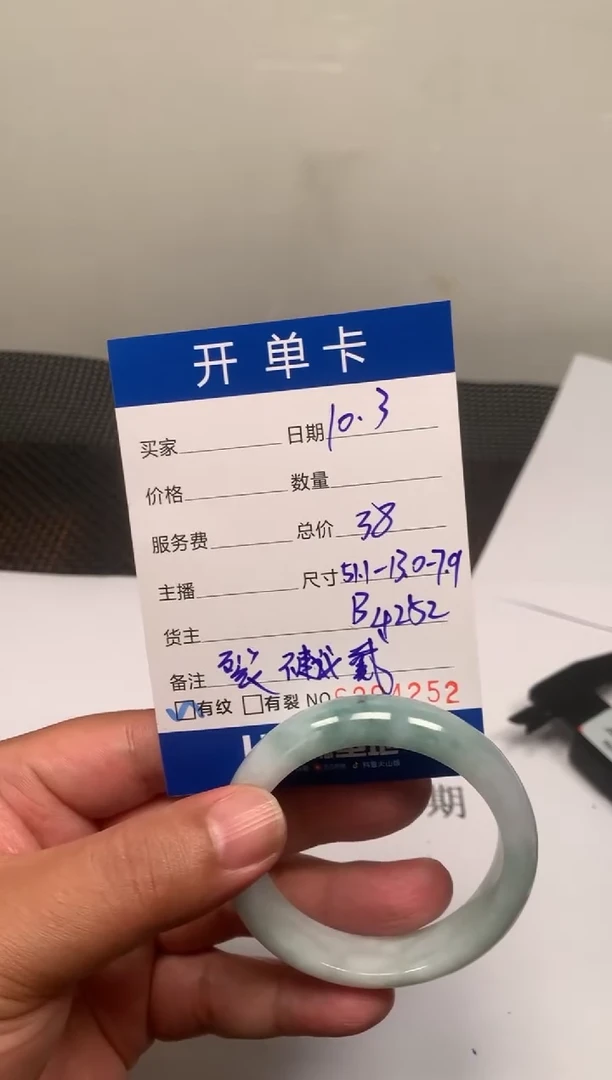 开单卡
买家 日期 10.3
价格 数量
服务费 总价 38
主播 尺寸 51.1-13.0-7.9
货主 B4252
备注 裂
有纹 有裂 NO 4252
期